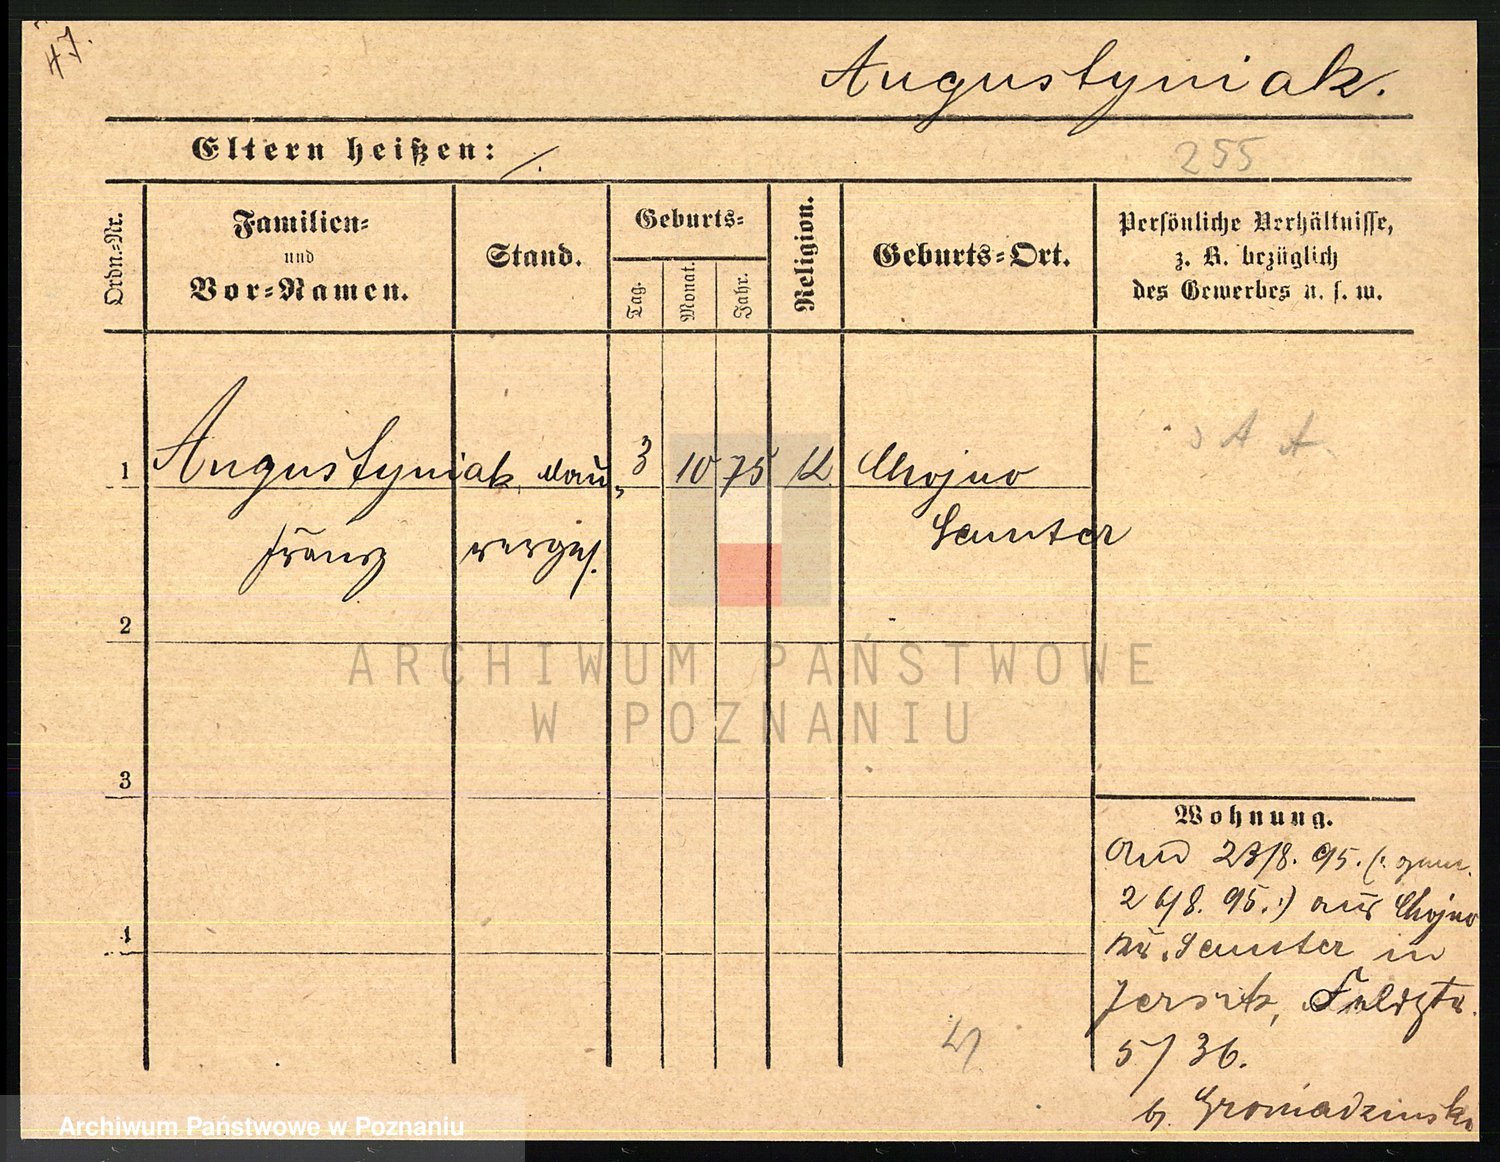 47.
Augustyniak.
Eltern heißen: /.
255
Ordn.=Nr.
Familien=
und
Vor=Namen.
Stand.
Geburts=
Tag.
Monat.
Jahr.
Religion.
Geburts=Ort.
Persönliche Verhältnisse,
z. B. bezüglich
des Gewerbes u. s. w.
1 Augustyniak, 3 10 75 K Chojno
Franz Samter
A A
2
3
4
Wohnung.
23/8. 95. (:
26/8. 95.:) aus Chojno
Kr. Samter in
Jersitz, Feldstr.
5/36.
b. Gromadzinska
ARCHIWUM PAŃSTWOWE
W POZNANIU
Archiwum Państwowe w Poznaniu